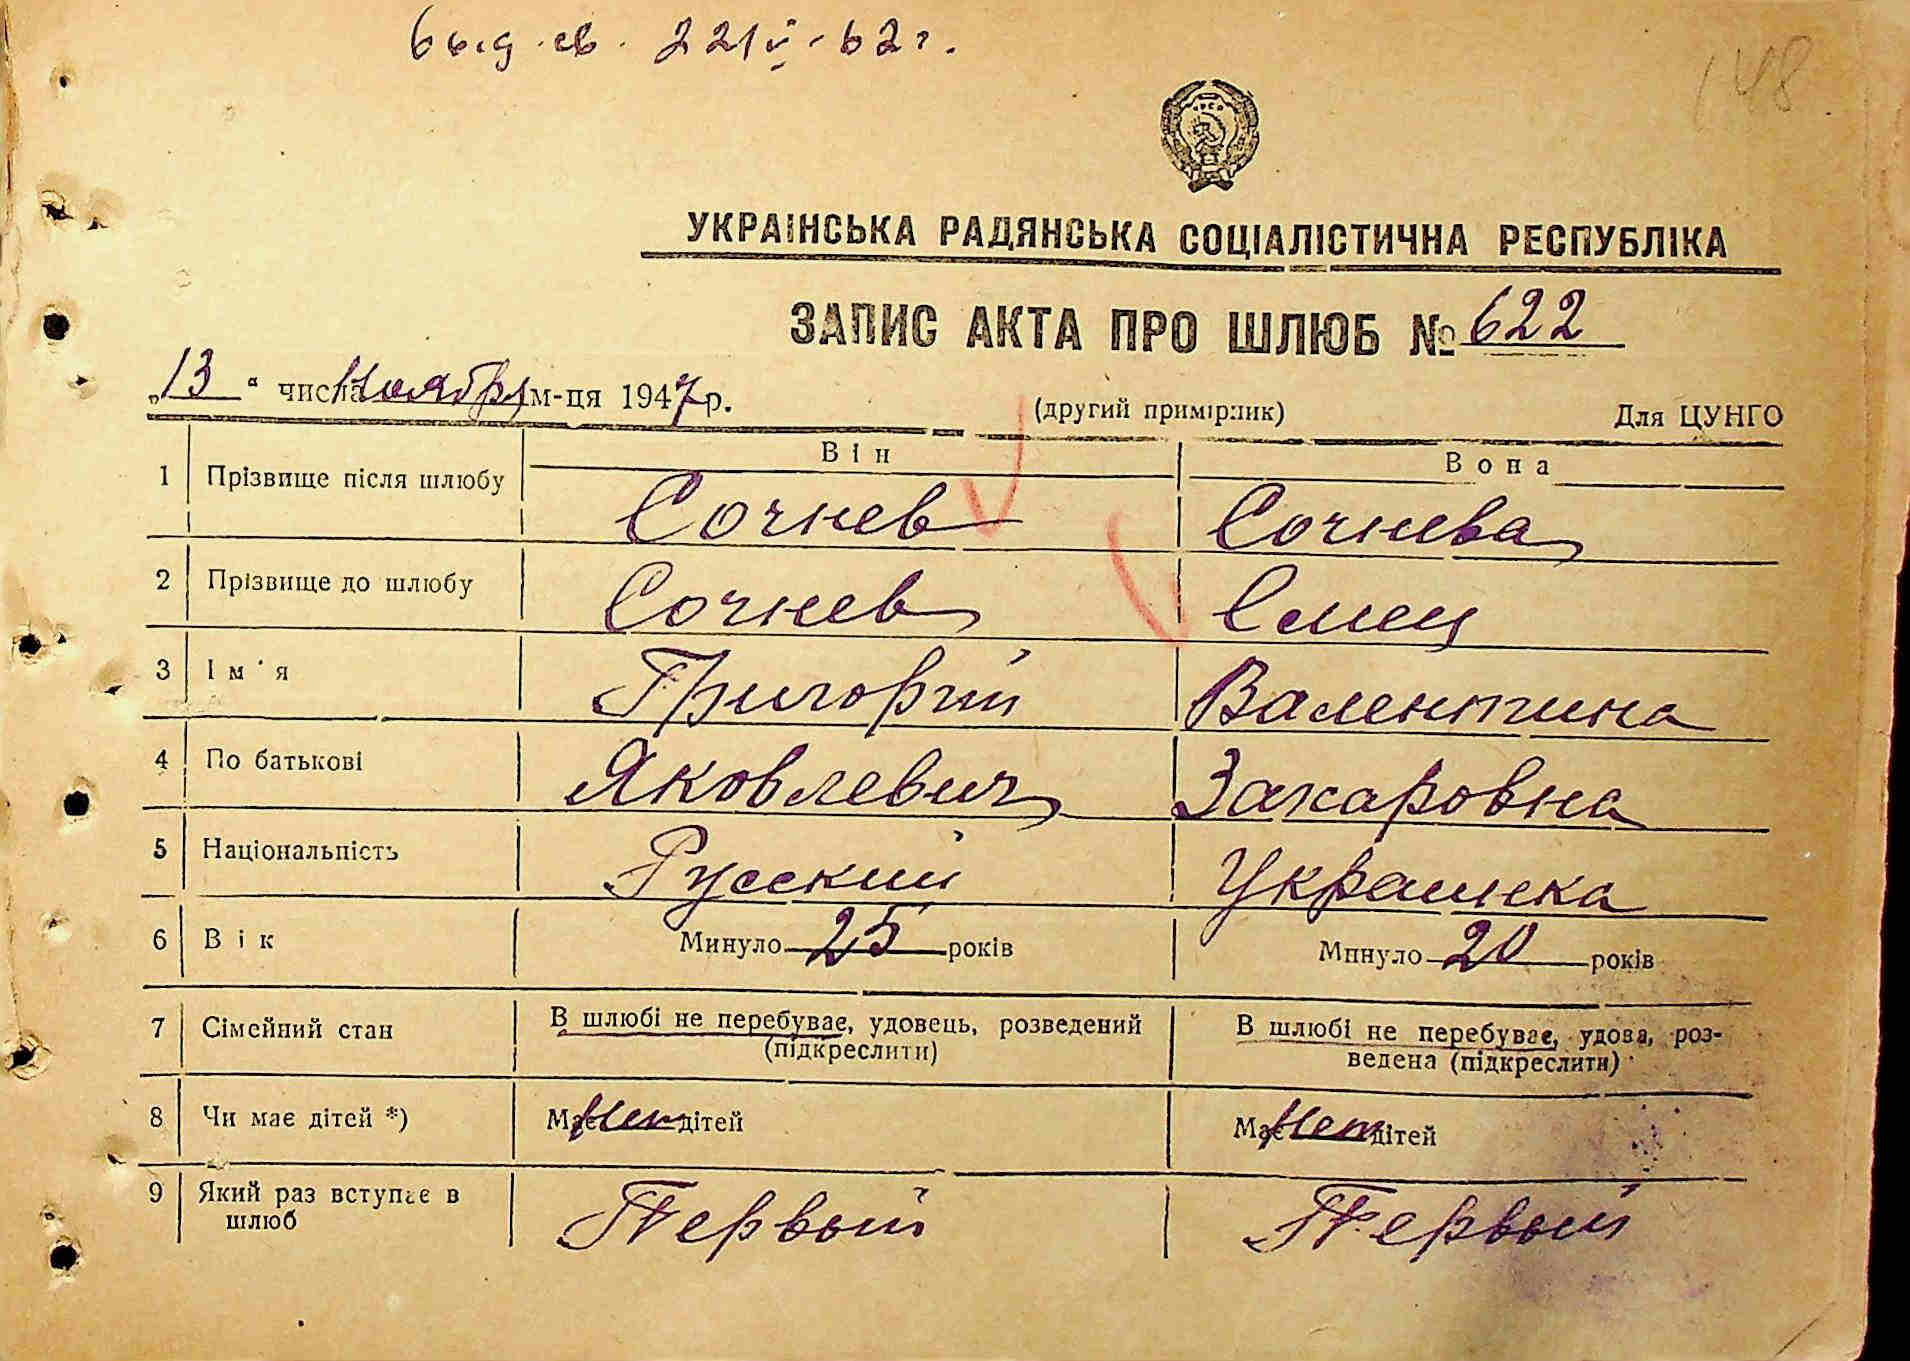 выд. св. 22/V-62 г.
148
УКРАЇНСЬКА РАДЯНСЬКА СОЦІАЛІСТИЧНА РЕСПУБЛІКА
ЗАПИС АКТА ПРО ШЛЮБ № 622
„13“ числа Ноября м-ця 1947 р.
(другий примірник) Для ЦУНГО
Він Вона
1 Прізвище після шлюбу Сочнев Сочнева
2 Прізвище до шлюбу Сочнев Смец
3 Ім'я Григорий Валентина
4 По батькові Яковлевич Захаровна
5 Національність Русский Украинка
6 Вік Минуло 25 років Минуло 20 років
7 Сімейний стан В шлюбі не перебуває, удовець, розведений В шлюбі не перебуває, удова, роз-
(підкреслити) ведена (підкреслити)
8 Чи має дітей *) Має Нет дітей Має Нет дітей
9 Який раз вступає в Первый Первый
шлюб